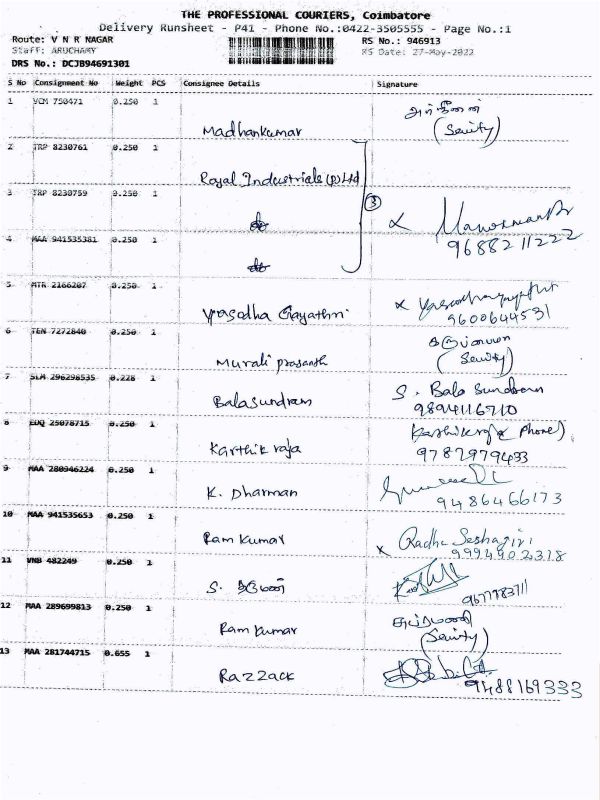 THE PROFESSIONAL COURIERS, Coimbatore
Delivery Runsheet - P41 - Phone No.:0422-3505555 - Page No.:1
Route: V N R NAGAR RS No.: 946913
Staff: ARUCHAMY RS Date: 27-May-2022
DRS No.: DCJB94691301
S No Consignment No Weight PCS Consignee Details Signature
1 VCM 750471 0.250 1 Madhankumar
(Seuity)
2 TRP 8230761 0.250 1 Royal Industriale (P) Ltd
3 TRP 8230759 0.250 1 ③ x
9688211222
4 MAA 941535381 0.250 1
5 MTR 2166207 0.250 1 Yasodha Gayathri x
9600644531
6 TEN 7272840 0.250 1 Murali prasanth
(Seuity)
7 SLM 296298535 0.228 1 Balasundram S. Bala Sundram
9894116710
8 EDQ 25078715 0.250 1 Karthik raja Karthikraja (Phone)
9787979433
9 MAA 280946224 0.250 1 K. Dharman
9486466173
10 MAA 941535653 0.250 1 Ram Kumar x Radha Seshagiri
9994902378
11 VNB 482249 0.250 1 S.
12 MAA 289699813 0.250 1 Ram Kumar
(Seuity)
13 MAA 281744715 0.655 1 Razzack
9488169333